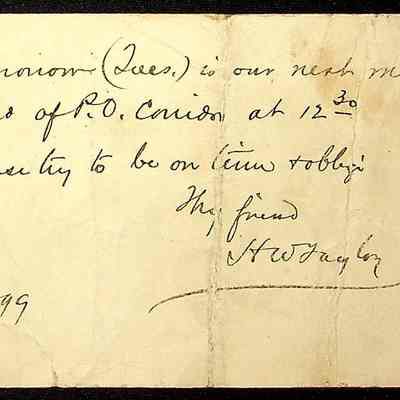 morrow (Tues.) is our next m
d of P.O. Corridor at 12 30
se try to be on time & oblige
Thy friend
H W Taylor
99